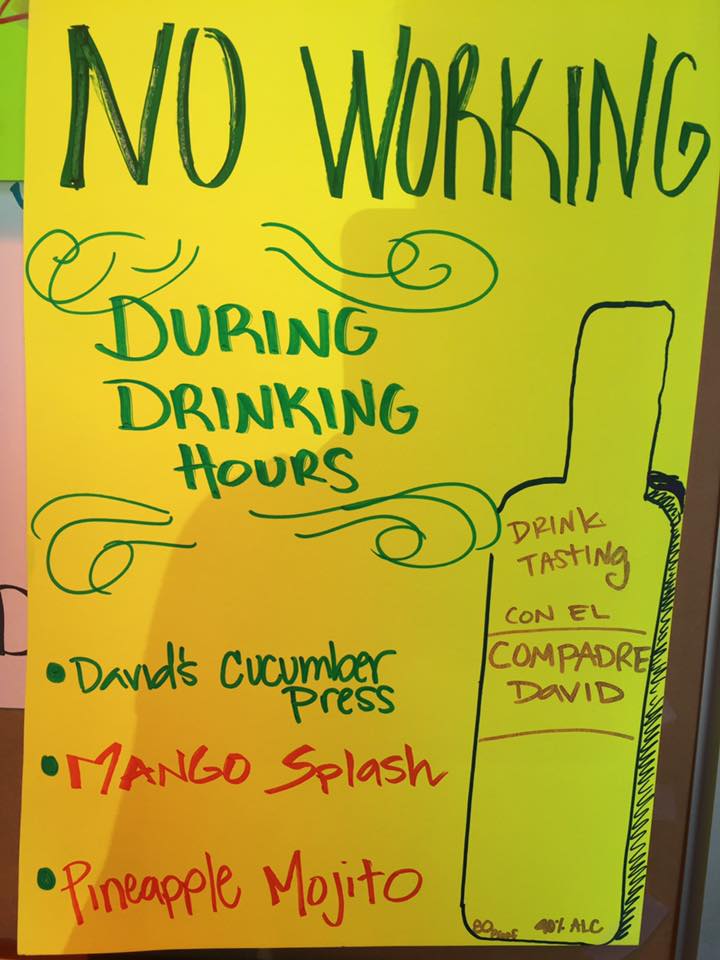 NO WORKING
DURING
DRINKING
HOURS
DRINK
TASTING
CON EL
COMPADRE
DAVID
• David's Cucumber
Press
• MANGO Splash
• Pineapple Mojito
80 Proof 40% ALC
D